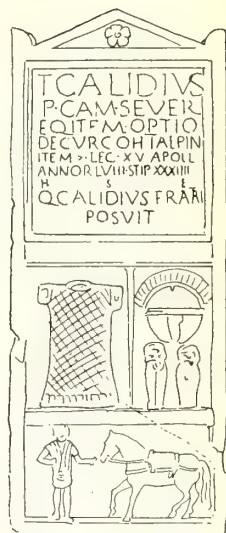 T CALIDIVS
P·CAM·SEVER
EQ ITEM·OPTIO
DECVR COH T ALPIN
ITEM >·LEG·XV APOLL
ANNOR LVIII·STIP XXXIIII
H S E
Q CALIDIVS FRATRI
POSVIT